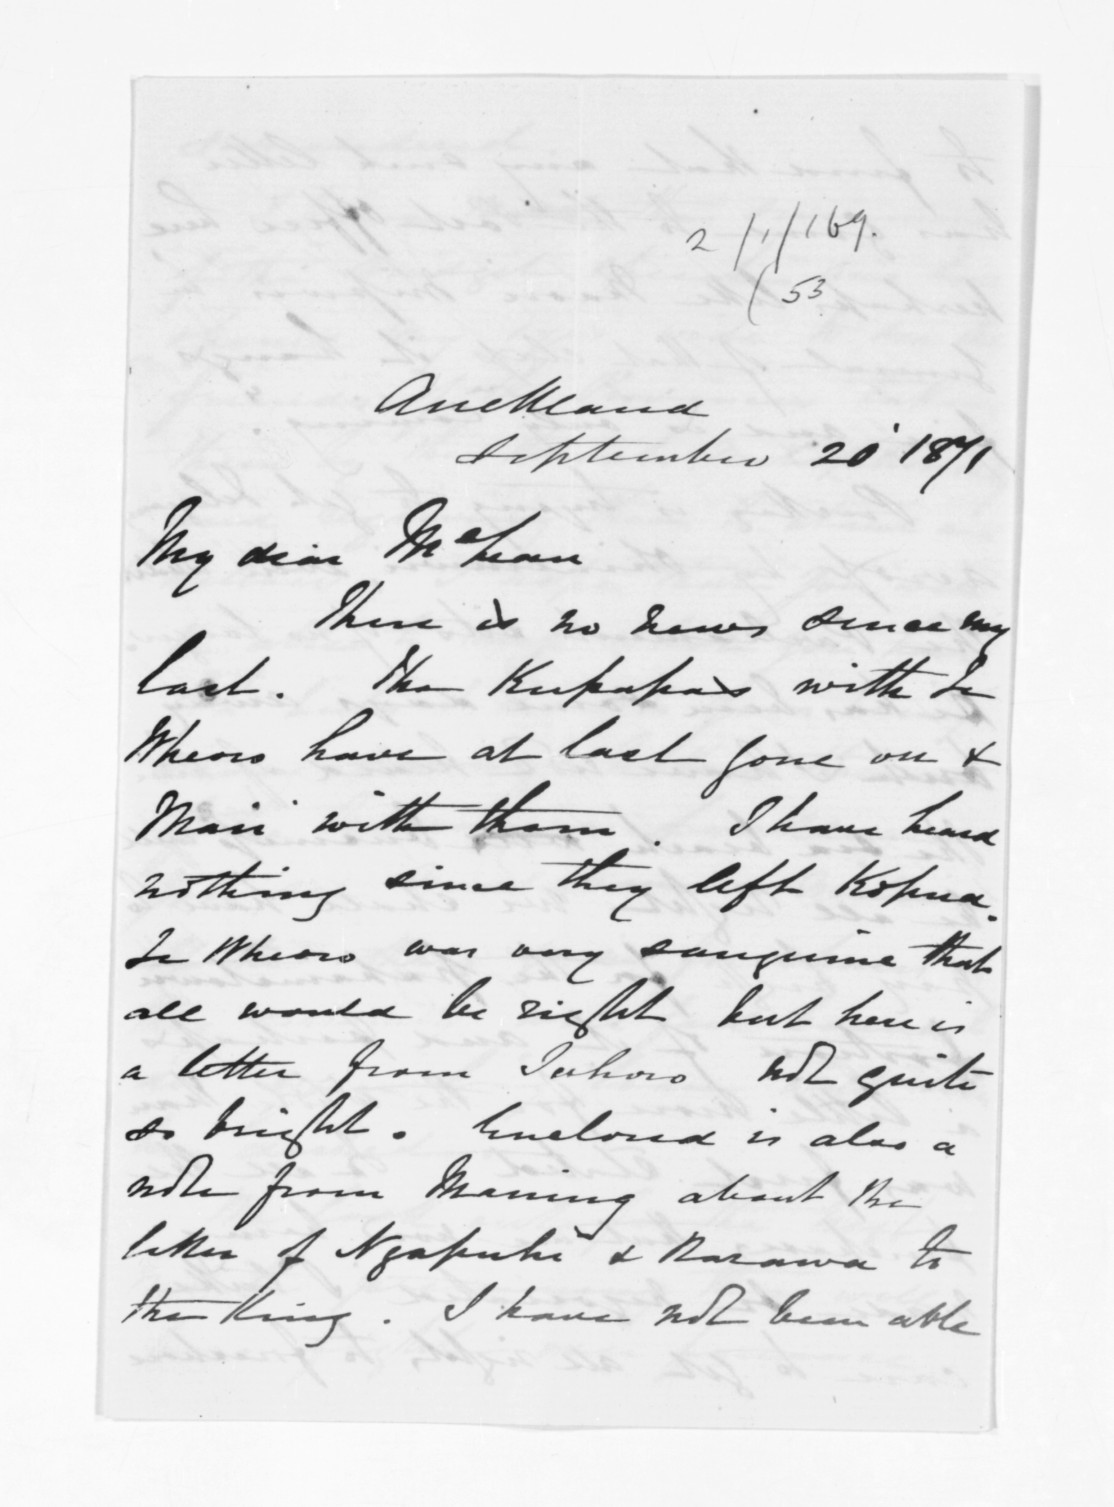 2/1/169.
(53
Auckland
September 20' 1871
My dear McLean
There is no news since my
last. The Kupapas with Te
Wheoro have at last gone on &
Mair with them. I have heard
nothing since they left Kopua.
Te Wheoro was very sanguine that
all would be right but here is
a letter from not quite
so bright. Enclosed is also a
note from Maning about the
letter of Ngapuhi & Rarawa to
the King. I have not been able